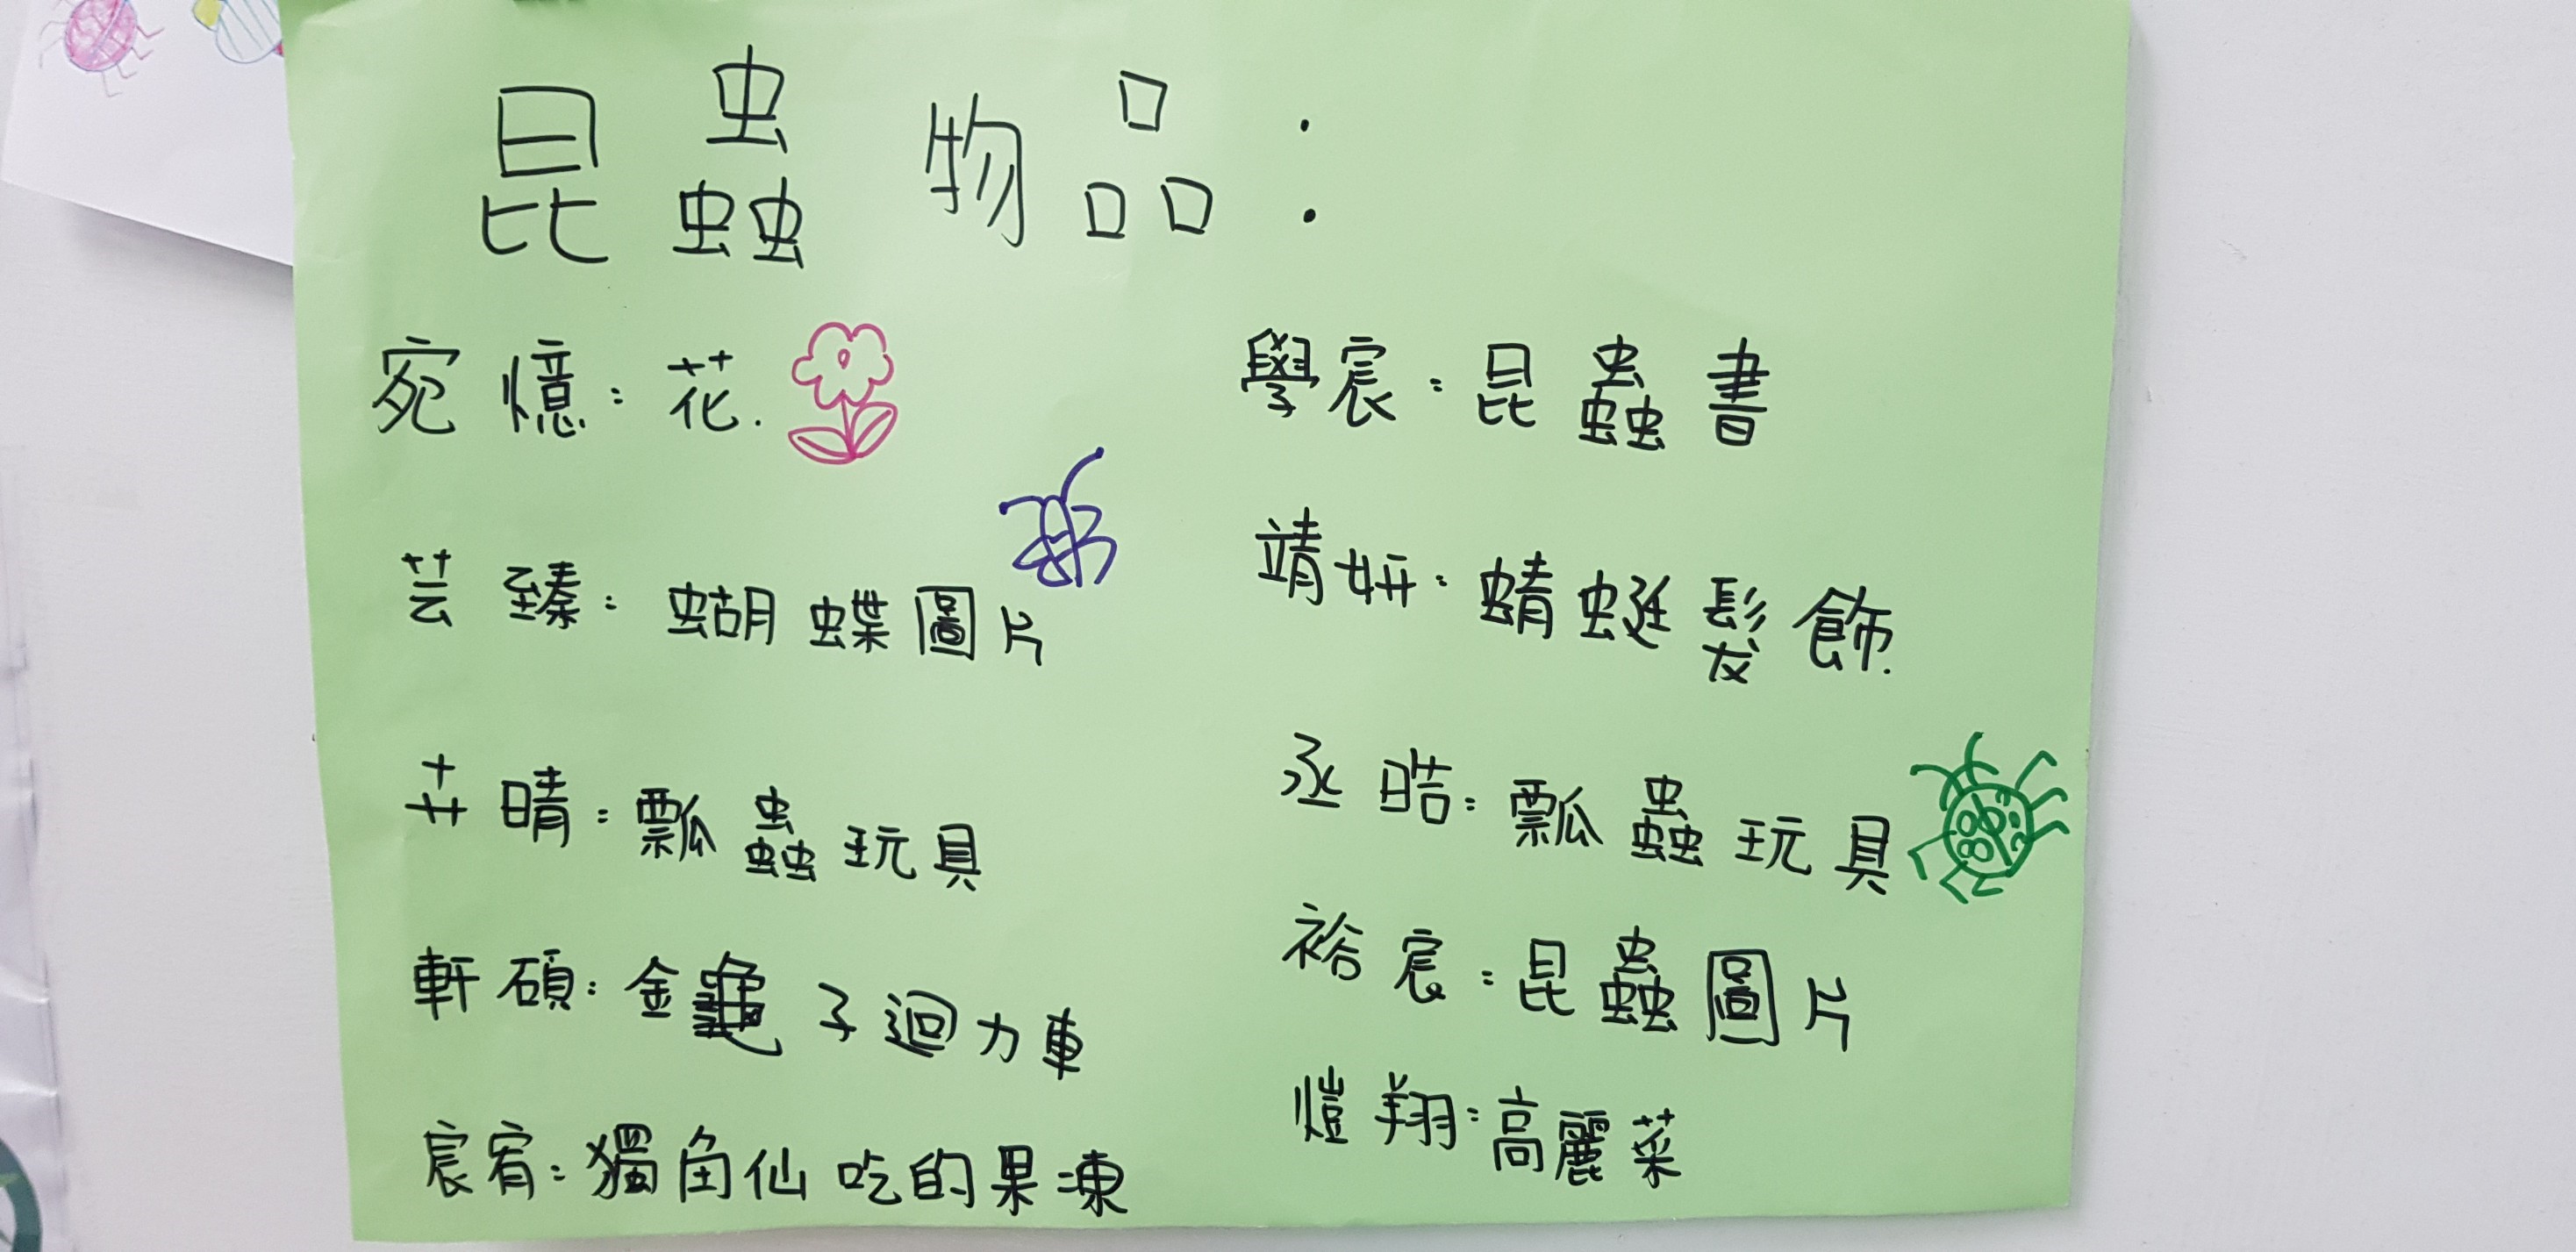 昆蟲物品：
宛憶：花.
芸臻：蝴蝶圖片
卉晴：瓢蟲玩具
軒碩：金龜子迴力車
宸宥：獨角仙吃的果凍
學宸：昆蟲書
靖妍：蜻蜓髮飾.
丞晧：瓢蟲玩具
裕宸：昆蟲圖片
愷翔：高麗菜